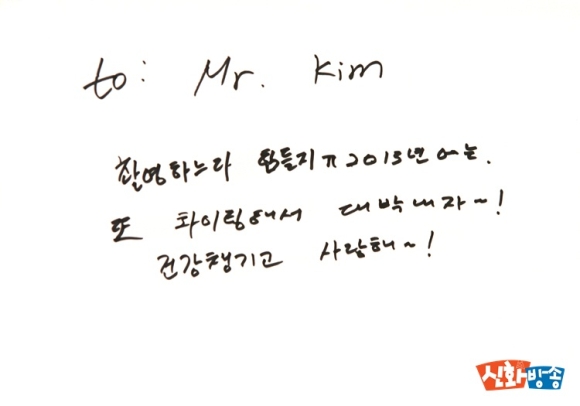 to: Mr. Kim
촬영하느라 힘들지ㅠ 2013년에는.
또 화이팅해서 대박내자~!
건강챙기고 사랑해~!
신화방송